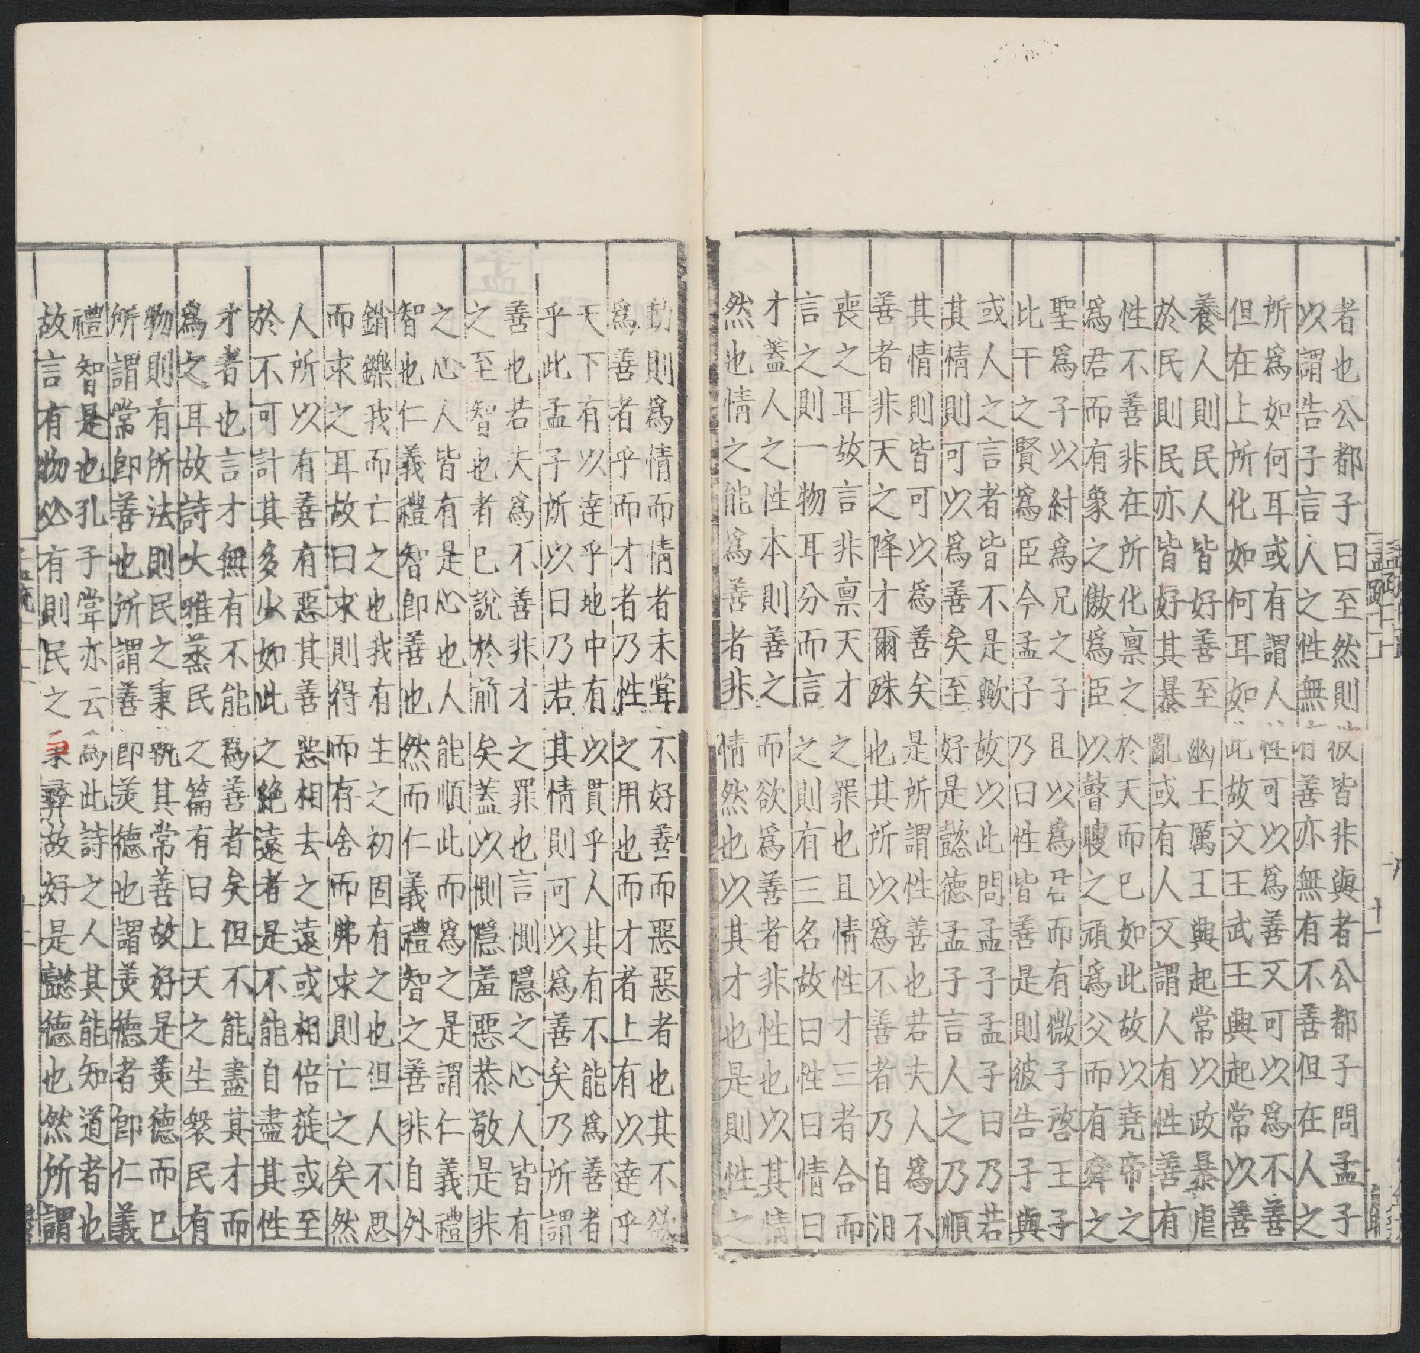 者也公都子曰至然則彼皆非與者公都子問孟子
以謂告子言人之性無有善亦無有不善但在人之
所爲如何耳或有謂人性可以爲善又可以爲不善
但在上所化如何耳如此故文王武王興起常以善
養人則民人皆好善至幽王厲王興起常以政暴虐
於民則民亦皆好其暴亂或有人又謂人有性善有
性不善非在所化禀之於天而已如此故以堯帝之
爲君而有象之傲爲臣以瞽瞍之頑爲父而有舜之
聖爲子以紂爲兄之子且以爲君而有微子啓王子
比干之賢爲臣今孟子乃曰性皆善是則彼告子與
或人之言者皆不是歟故以此問孟子孟子曰乃若
其情則可以爲善矣至好是懿德孟子言人之乃順
其情則皆可以爲善矣是所謂性善也若夫人爲不
善者非天之降才爾殊也其所以爲不善者乃自汨
喪之耳故言非禀天才之罪也且情性才三者合而
言之則一物耳分而言之則有三名故曰性曰情曰
才蓋人之性本則善之而欲爲善者非性也以其情
然也情之能爲善者非情然也以其才也是則性之
動則爲情而情者未嘗不好善而惡惡者也其不欲
爲善者乎而才者乃性之用也而才者上有以達乎
天下有以達乎地中有以貫乎人其有不能爲善者
乎此孟子所以曰乃若其情則可以爲善矣乃所謂
善也若夫爲不善非才之罪也言惻隱之心人皆有
之至智也者已說於前矣蓋以惻隱羞惡恭敬是非
之心人皆有是心也人能順此而爲之是謂仁義禮
智也仁義禮智即善也然而仁義禮智之善非自外
銷鑠我而亡之也我有生之初固有之也但人不思
而求之耳故曰求則得而存舍而弗求則亡之矣然
人所以有善有惡其善惡相去之遠或相倍蓰或至
於不可計其多少如此之絶遠者是不能自盡其性
才者也言才無有不能爲善者矣但不能盡其才而
爲之耳故詩大雅蒸民之篇有曰上天之生衆民有
物則有所法則民之秉執其常善故好是美德而已
所謂常即善也所謂善即美德也謂美德者即仁義
禮智是也孔子嘗亦云爲此詩之人其能知道者也
故言有物必有則民之秉彝故好是懿德也然所謂